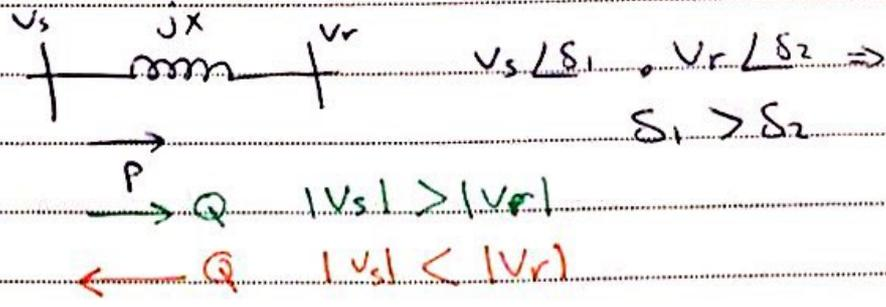 Vs jX Vr
Vs∠δ1 , Vr∠δ2 ⇒
δ1 > δ2
P
→ Q |Vs| > |Vr|
← Q |Vs| < |Vr|